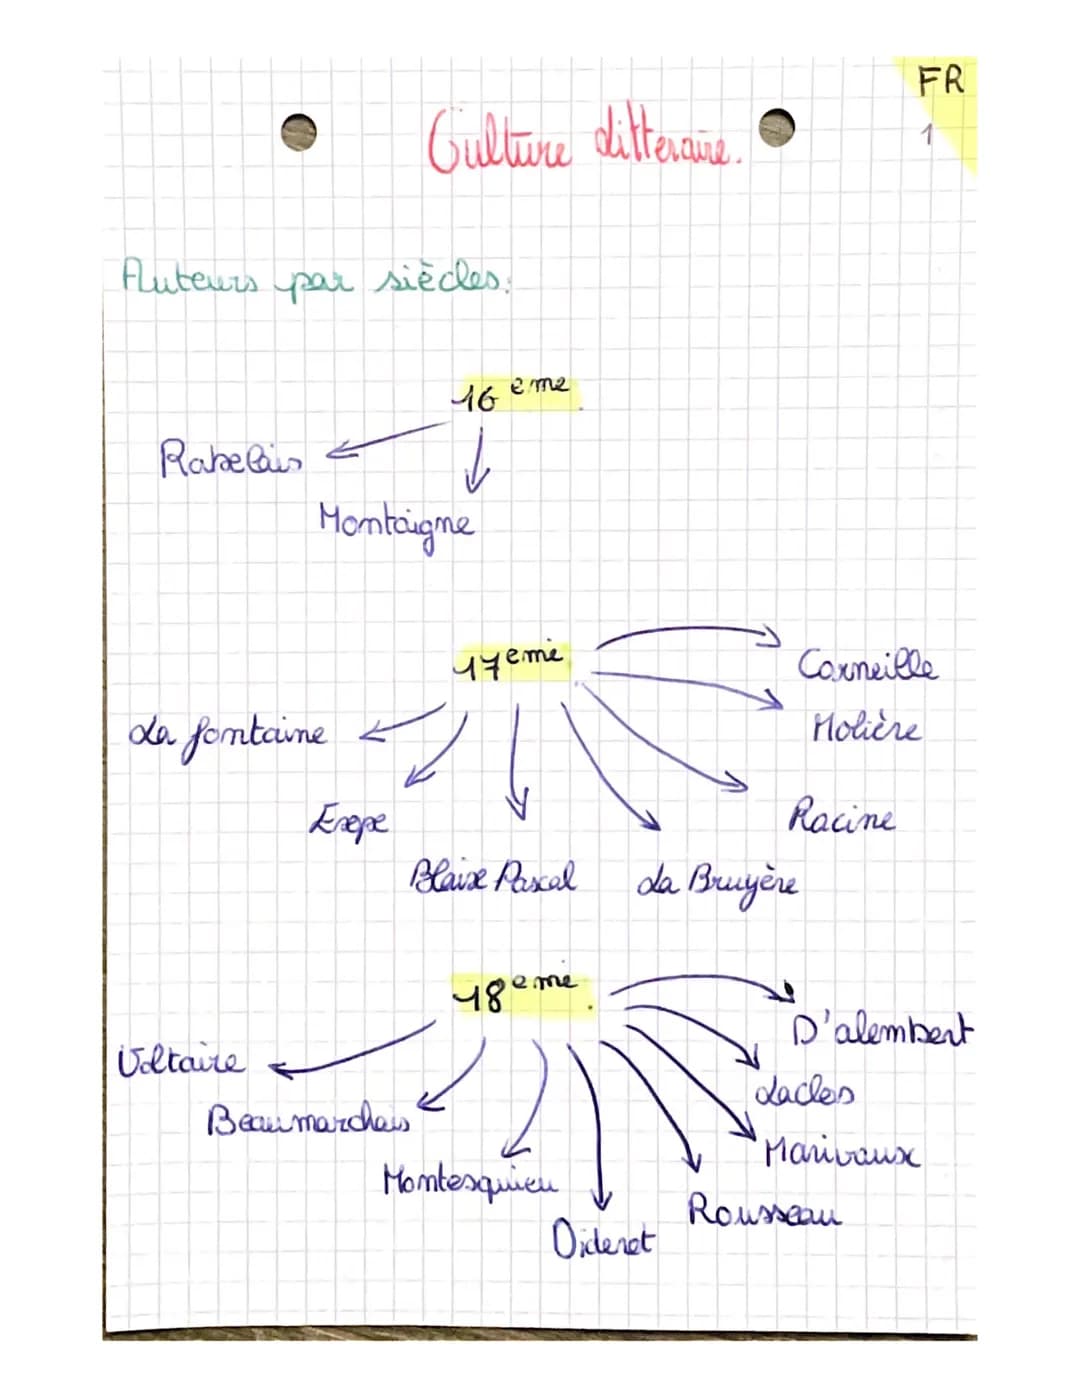 FR
1
Culture littéraire.
Auteurs par siècles:
16 eme
Rabelais
Montaigne
17 eme
Corneille
Molière
La fontaine
Esope
Racine
Blaise Pascal
La Bruyère
18 eme
D'alembert
Voltaire
Laclos
Beaumarchais
Marivaux
Montesquieu
Rousseau
Diderot